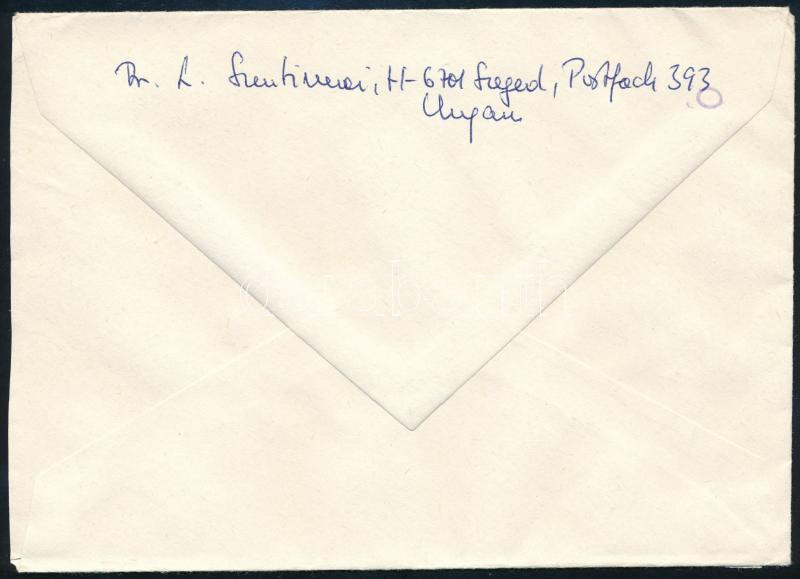 Dr. L. Szentirmai, H-6701 Szeged, Postfach 393
Ungarn
darabanth